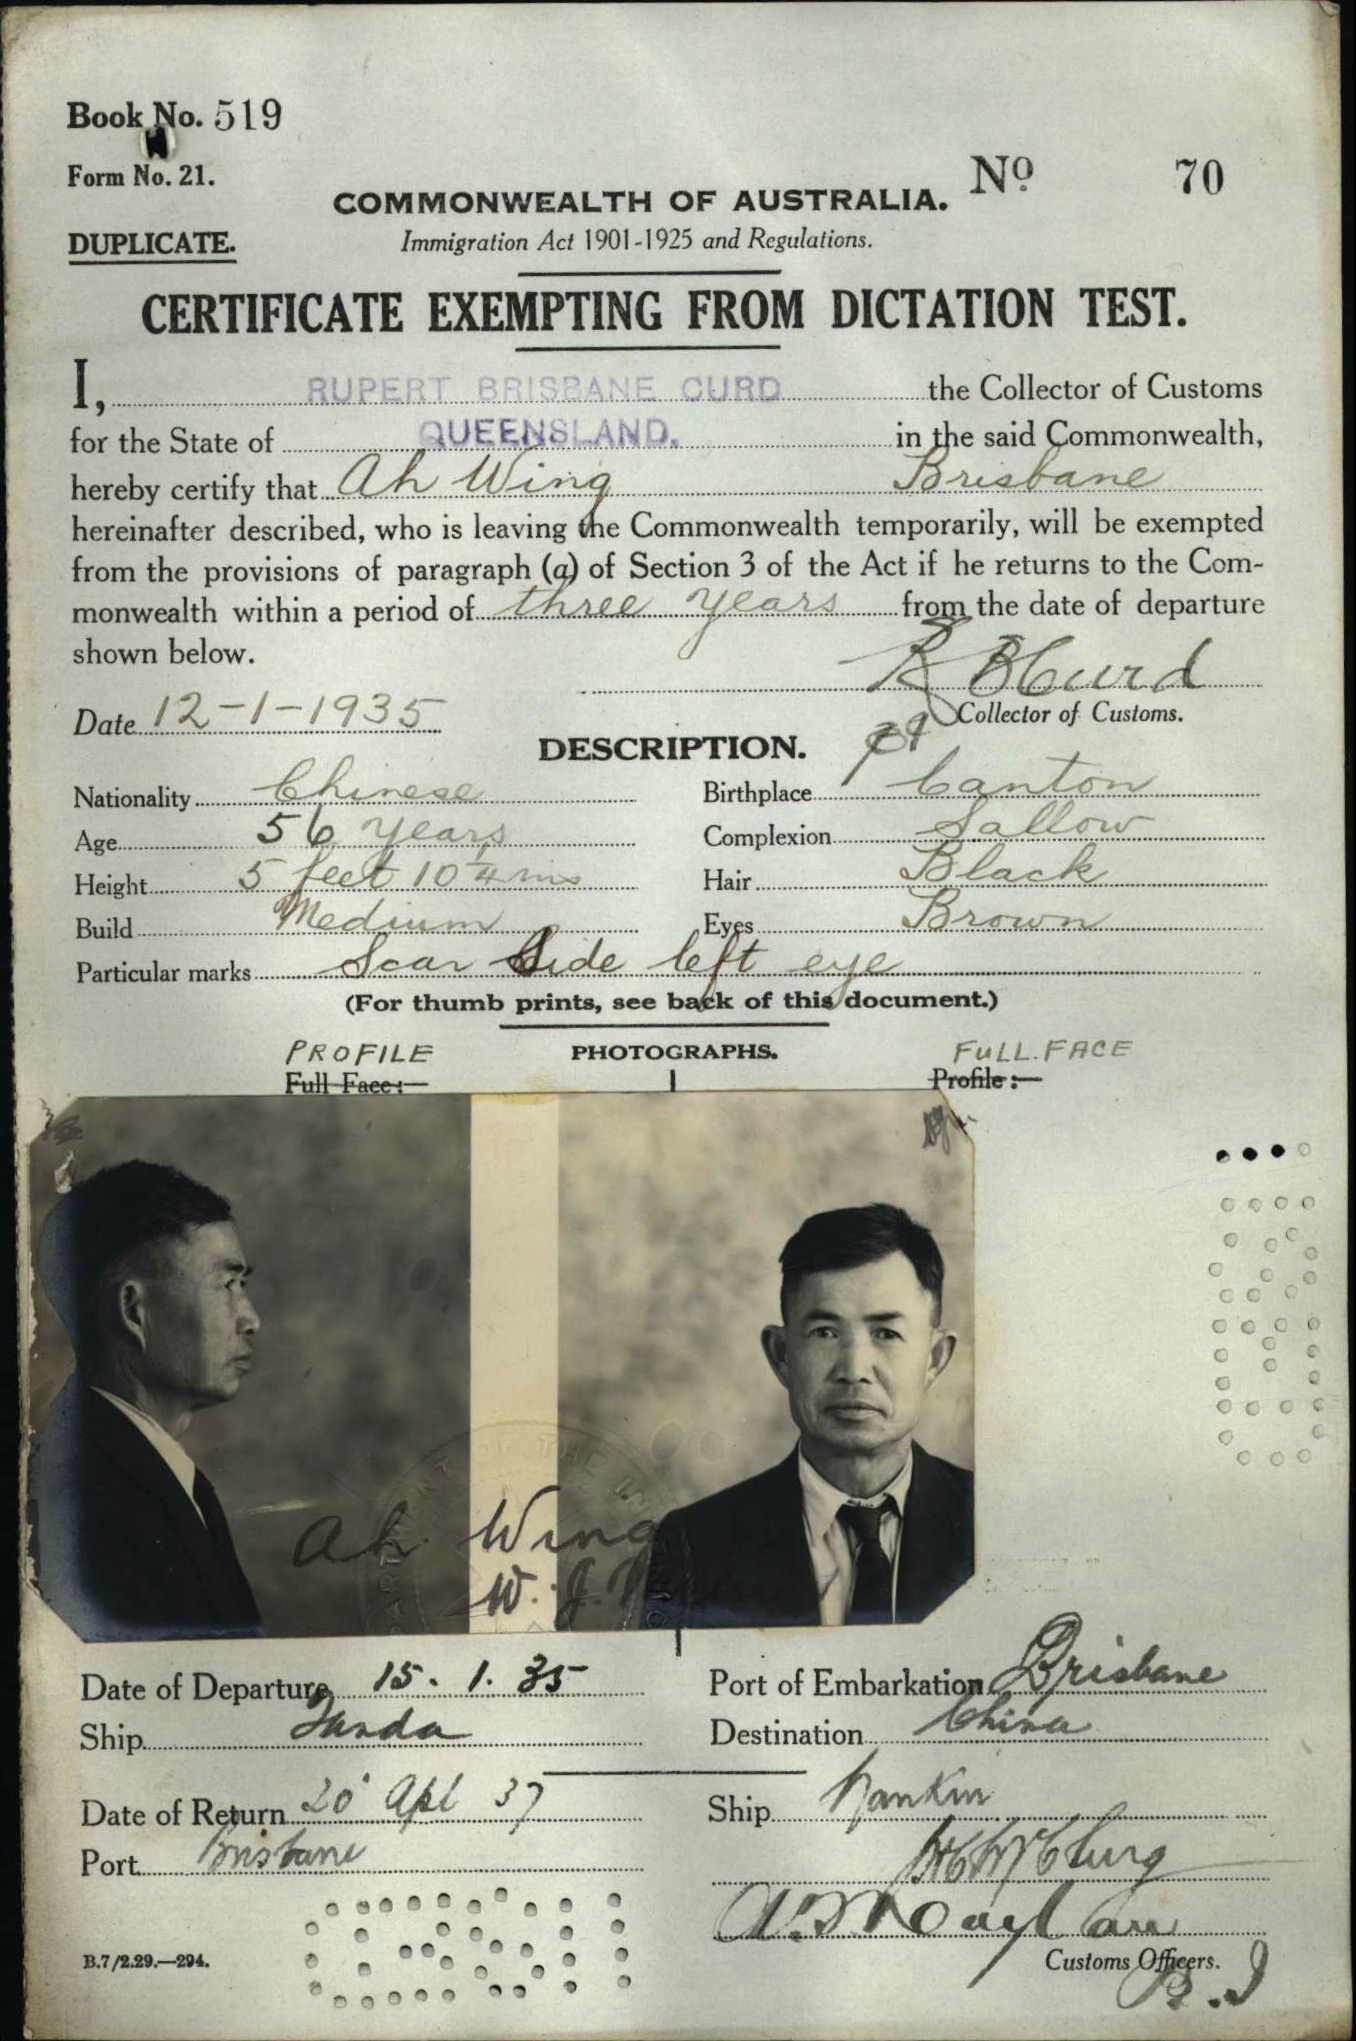 Book No. 519
Form No. 21.
No 70
COMMONWEALTH OF AUSTRALIA.
DUPLICATE.
Immigration Act 1901-1925 and Regulations.
CERTIFICATE EXEMPTING FROM DICTATION TEST.
I, RUPERT BRISBANE CURD the Collector of Customs
for the State of QUEENSLAND. in the said Commonwealth,
hereby certify that Ah Wing Brisbane
hereinafter described, who is leaving the Commonwealth temporarily, will be exempted
from the provisions of paragraph (a) of Section 3 of the Act if he returns to the Com-
monwealth within a period of three years from the date of departure
shown below.
R B Curd
Date 12-1-1935
Collector of Customs.
DESCRIPTION.
Nationality Chinese Birthplace Canton
Age 56 years Complexion Sallow
Height 5 feet 10 1/4 ins Hair Black
Build Medium Eyes Brown
Particular marks Scar Side left eye
(For thumb prints, see back of this document.)
PROFILE PHOTOGRAPHS. FULL.FACE
Full Face:— Profile:—
Ah Wing
W. J.
Date of Departure 15. 1. 35 Port of Embarkation Brisbane
Ship Tanda Destination China
Date of Return 20 Apl 37 Ship Nankin
Port Brisbane
Customs Officers.
B.7/2.29.—294.